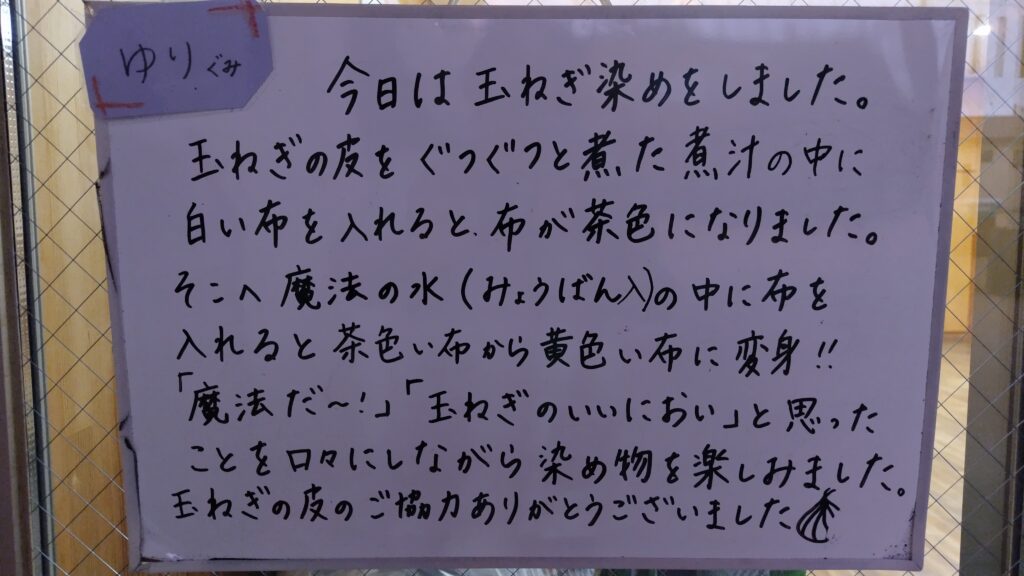 ゆりぐみ
今日は玉ねぎ染めをしました。
玉ねぎの皮をぐつぐつと煮た煮汁の中に
白い布を入れると、布が茶色になりました。
そこへ魔法の水(みょうばん入)の中に布を
入れると茶色い布から黄色い布に変身!!
「魔法だ～!」「玉ねぎのいいにおい」と思った
ことを口々にしながら染め物を楽しみました。
玉ねぎの皮のご協力ありがとうございました